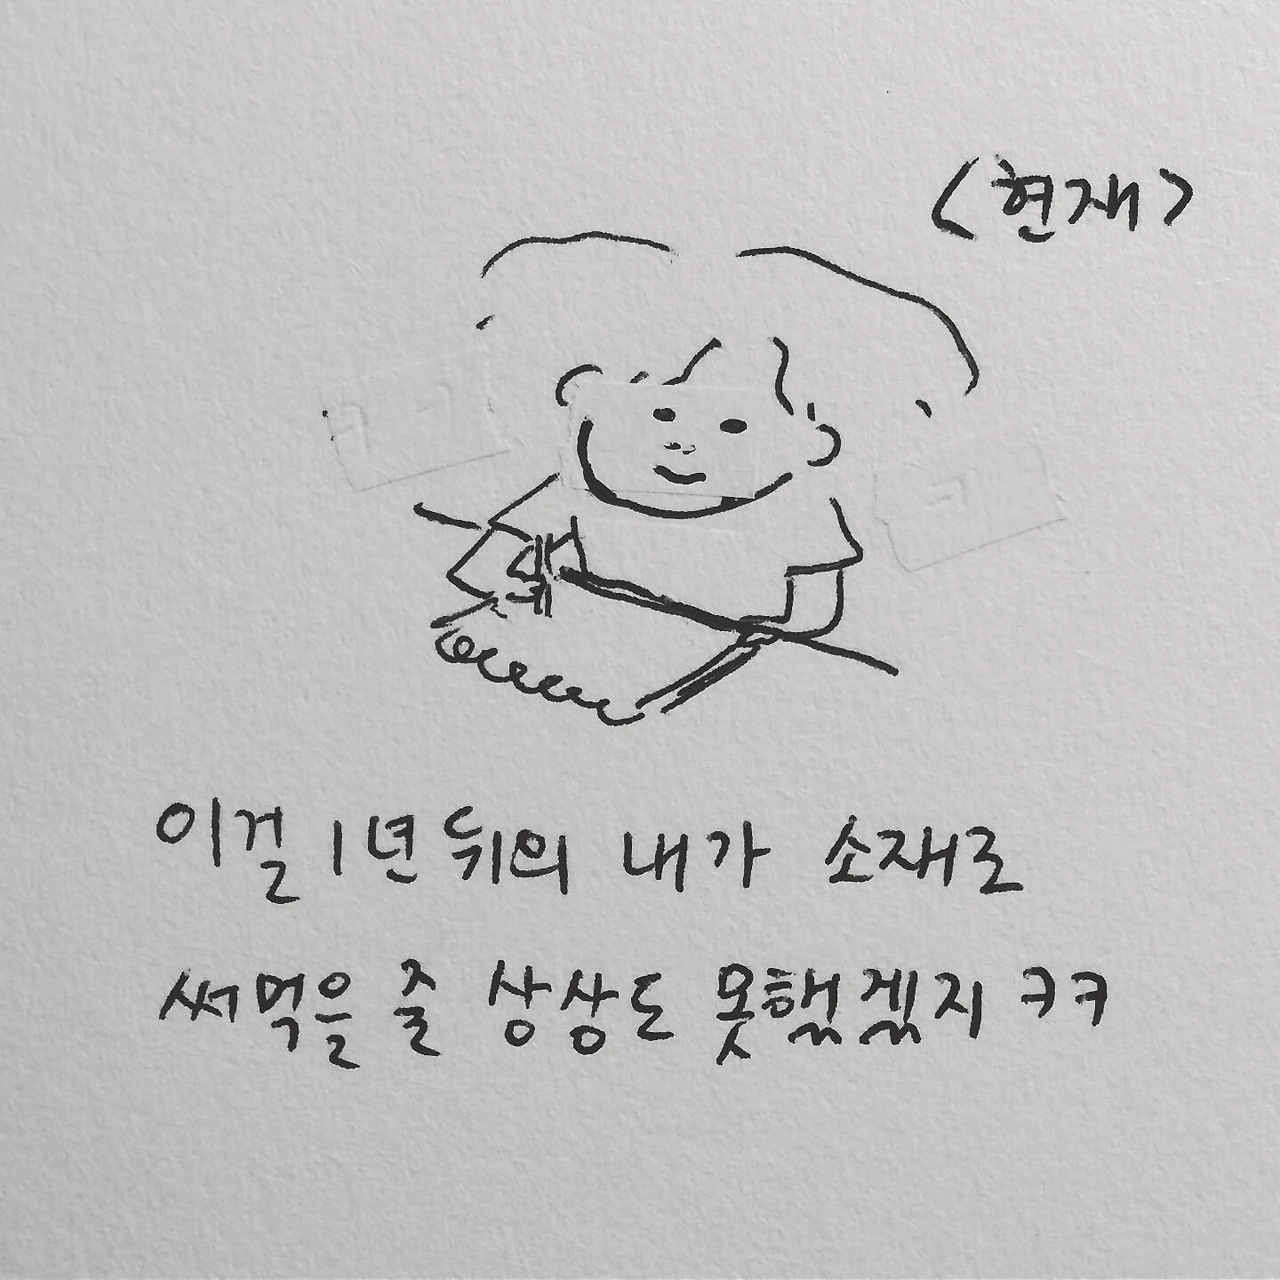 <현재>
이걸 1년 뒤의 내가 소재로
써먹을 줄 상상도 못했겠지 ㅋㅋ